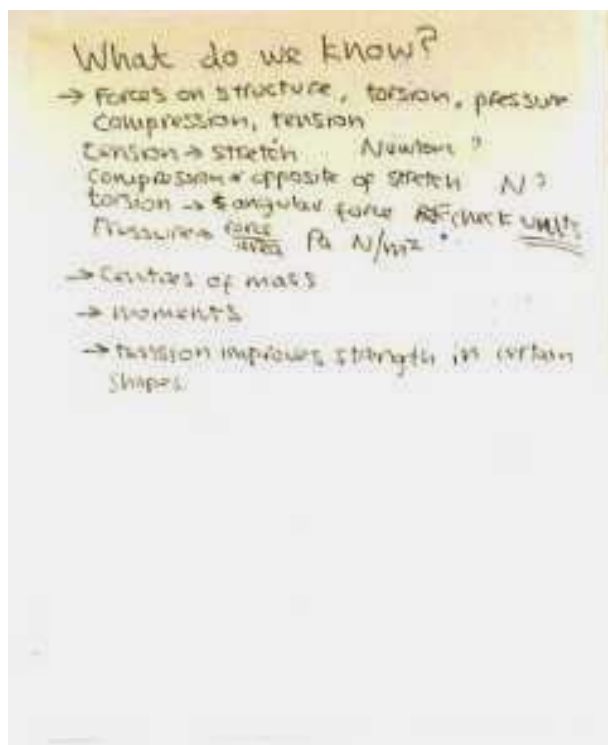 What do we know?
→ Forces on structure, torsion, pressure
compression, tension
tension → stretch Newton ?
compression → opposite of stretch N ?
torsion → angular force check units
Pressure → force/area Pa N/m²
→ Centres of mass
→ moments
→ tension improves strength in certain
shapes